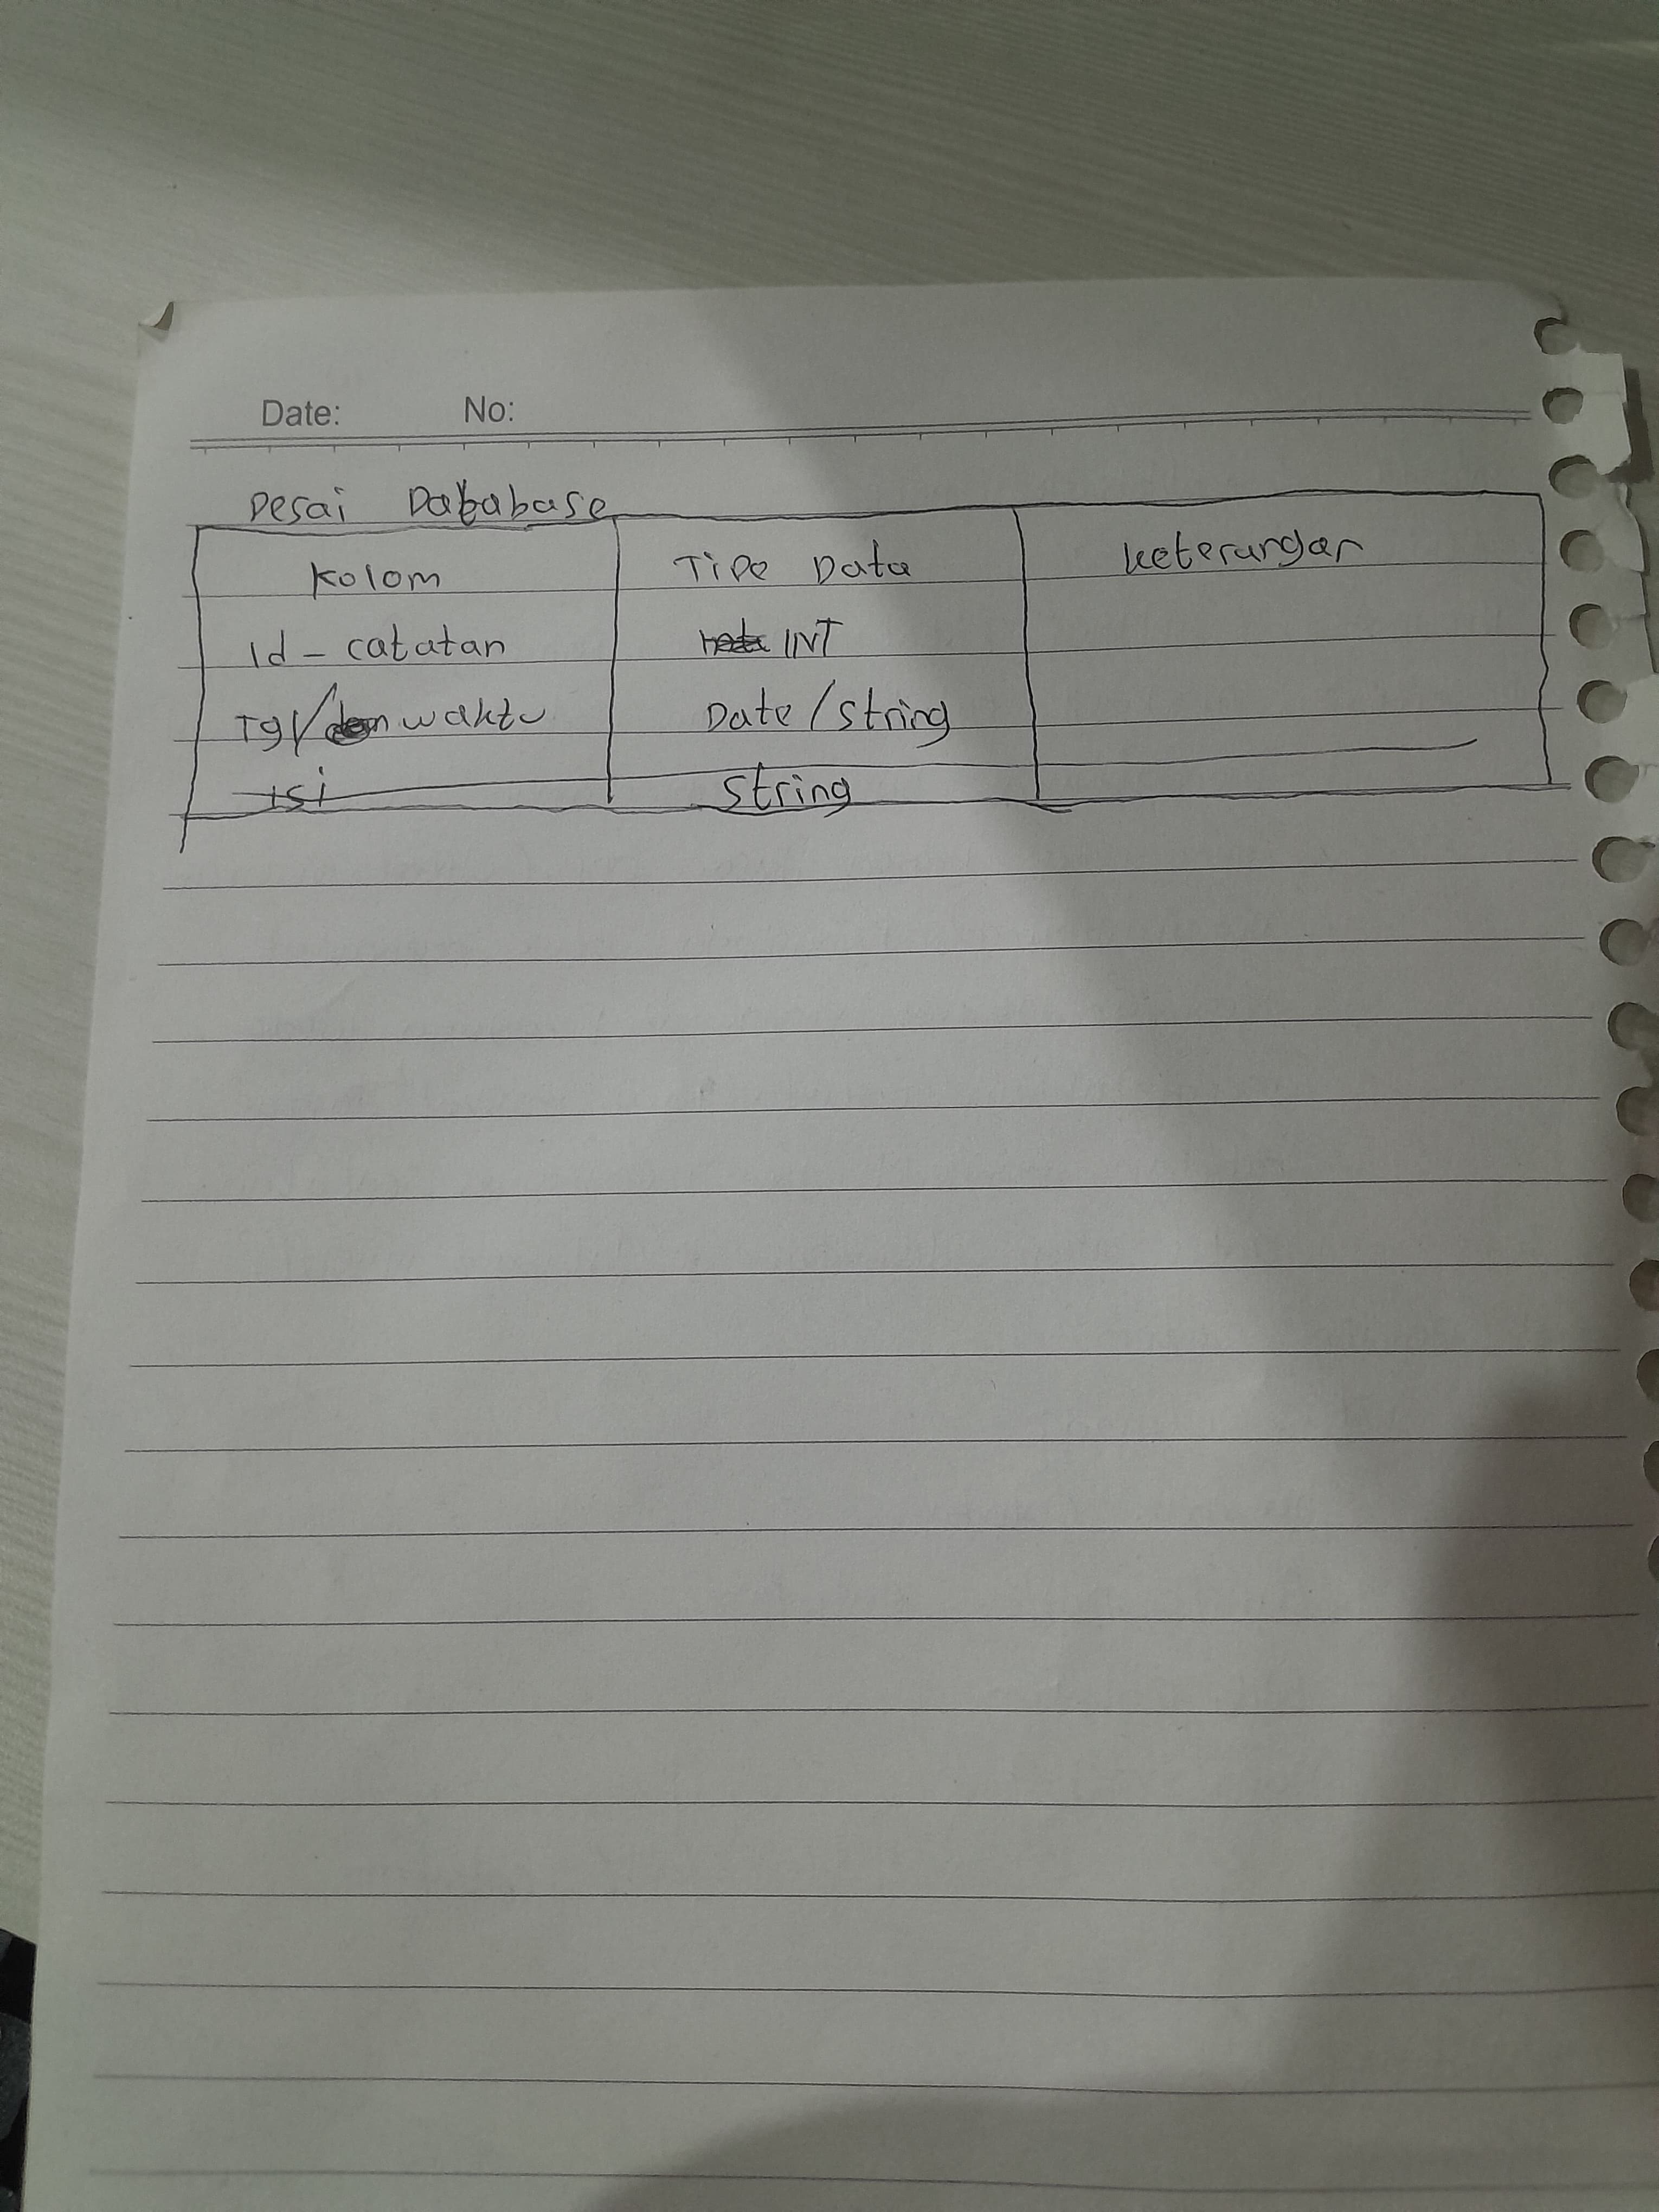 Date: No:
Desai Dababase
Kolom Tipe Data Keterangan
Id - catatan INT
Tgl/ waktu Date/String
isi String